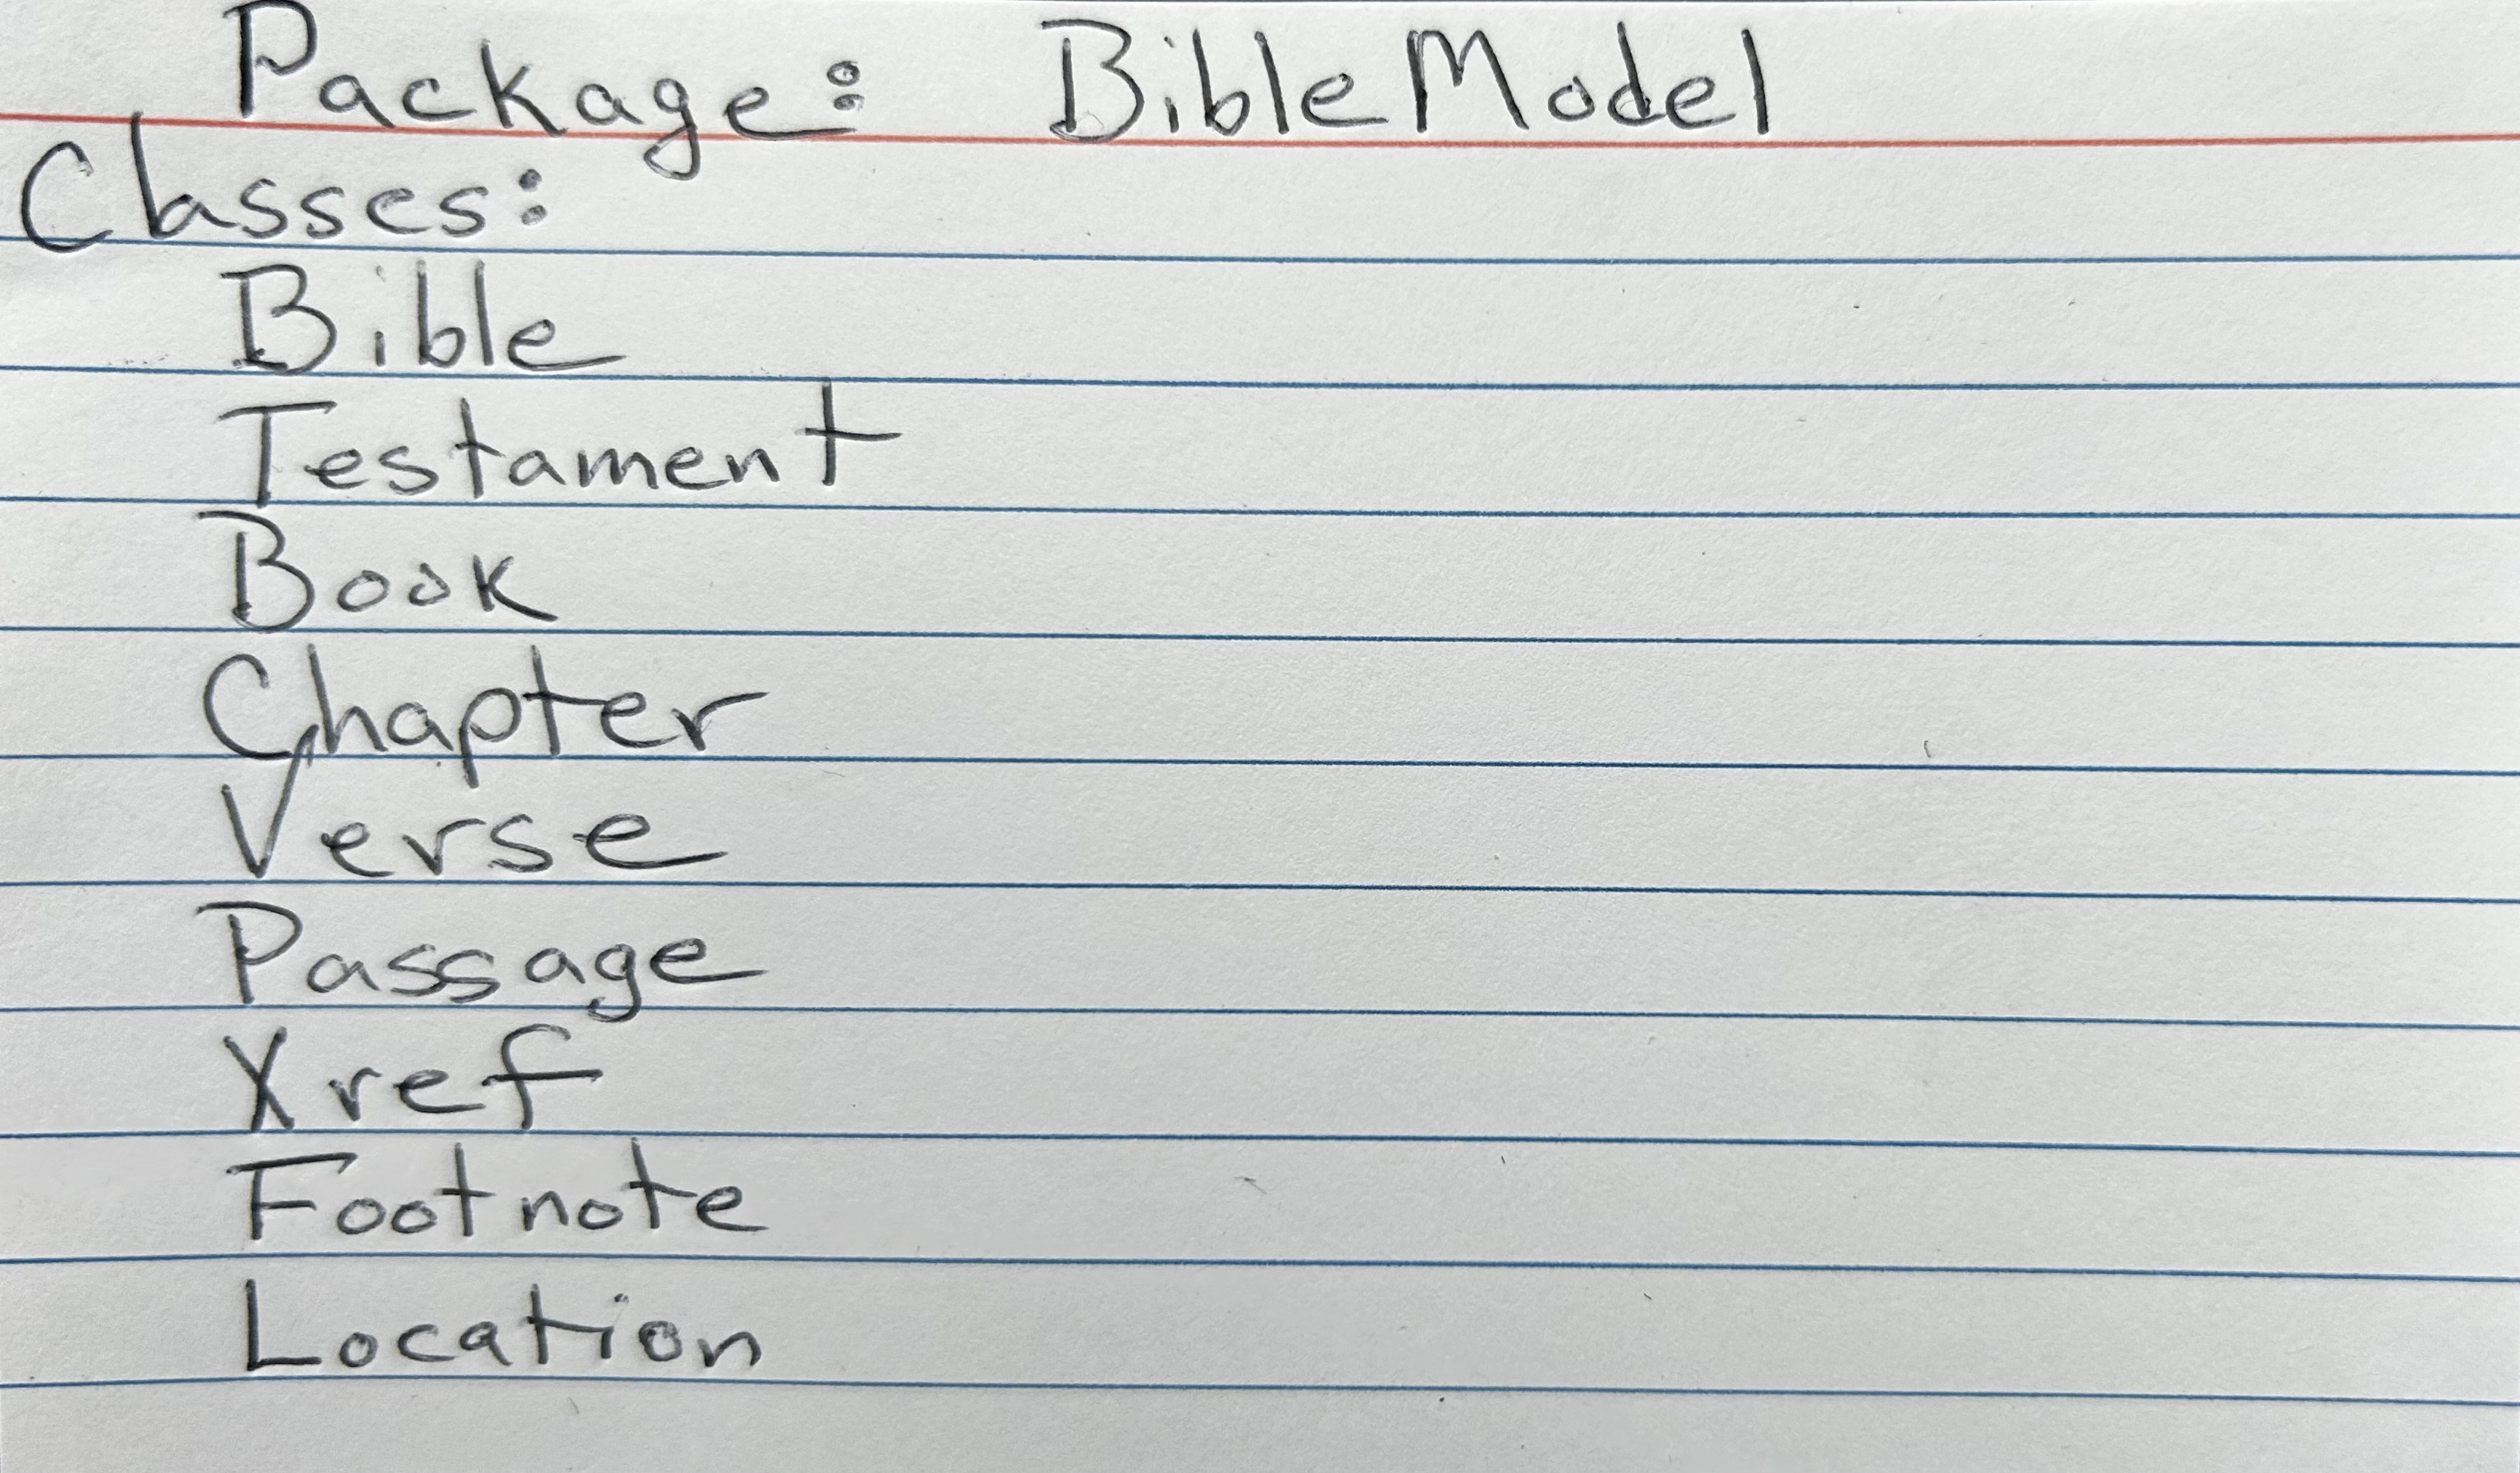 Package: BibleModel
Classes:
Bible
Testament
Book
Chapter
Verse
Passage
Xref
Footnote
Location